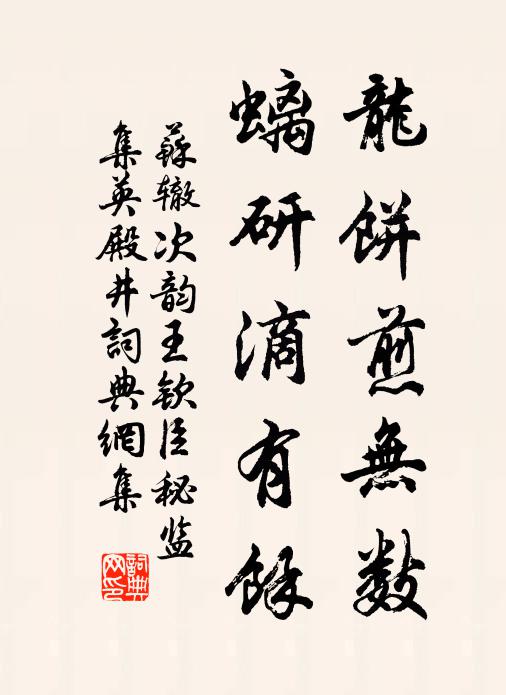 龍餅煎無數
螭研滴有餘
蘇辙次韵王钦臣秘监
集英殿井詞典網集
詞典网印